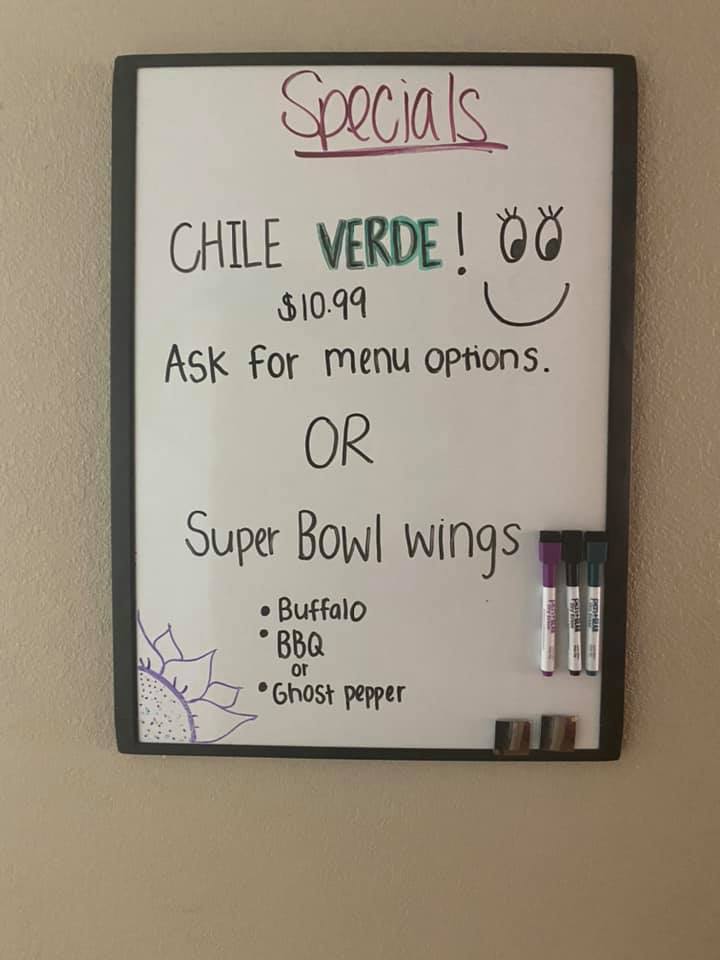 Specials
CHILE VERDE!
$10.99
Ask for menu options.
OR
Super Bowl wings
• Buffalo
• BBQ
or
• Ghost pepper